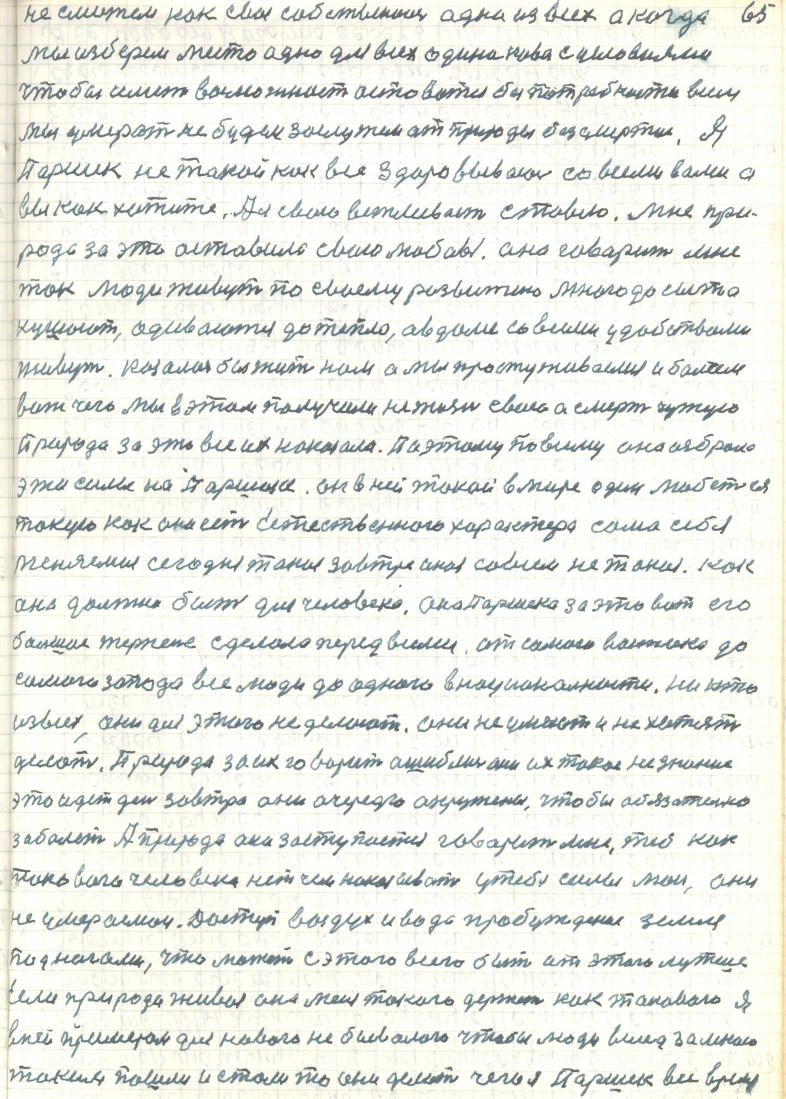 не смотем как своя собственая одна из всех а когда 65
мы изберем место одно для всех одинакова с условиями
чтобы иметь возможност оставатся без потребности всем
мы умерат не будем заслужем от природы безсмертие. Я
Паршек не такой как все здоровываюсь со всеми вами а
вы как хотите. А я свою вежливаст ставлю. Мне при-
рода за это оставила свою любовь. она говорит мне
так люди живут по своему развитию много до сыта
кушают, адиваются до тепло, а в доме со всеми удобствами
живут. Казалась бы жит нам а мы простуживаемся и болеем
вот чего мы в этом получили не жизн свою а смерт чужую
Природа за это все их наказала. Паэтому по всему она набрала
эти силы на Паршека. он в ней такой в мире один любется
такую как она ест естественного характера сама себя
меняемая сегодня такая завтра оная совсем не такая. как
она должна быт для человека. Она Паршека за это вот его
большое терпение сделала перед всеми. от самого востока до
самого запода все люди до одного в националности. ни кто
из всех, они для этого не делают. они не умеют и не хотят
делат. Природа за их говорит ашиблис они их такое незнание
это идет ден завтра они очередю окружены, чтобы обязательно
заболет А природа она заступается говорит мне, тебя как
такового человека нет чем наказыват у тебя силы мои, они
не умераемая. Доступ воздух и вода пробуждение земля
подначали, что может с этого всего быт от этого лутше
если природа живая она меня такого держит как такового Я
в ней примером для нового не бывалого чтобы люди вслед за мною
такеми пошли и стали то они делат чего я Паршек все время